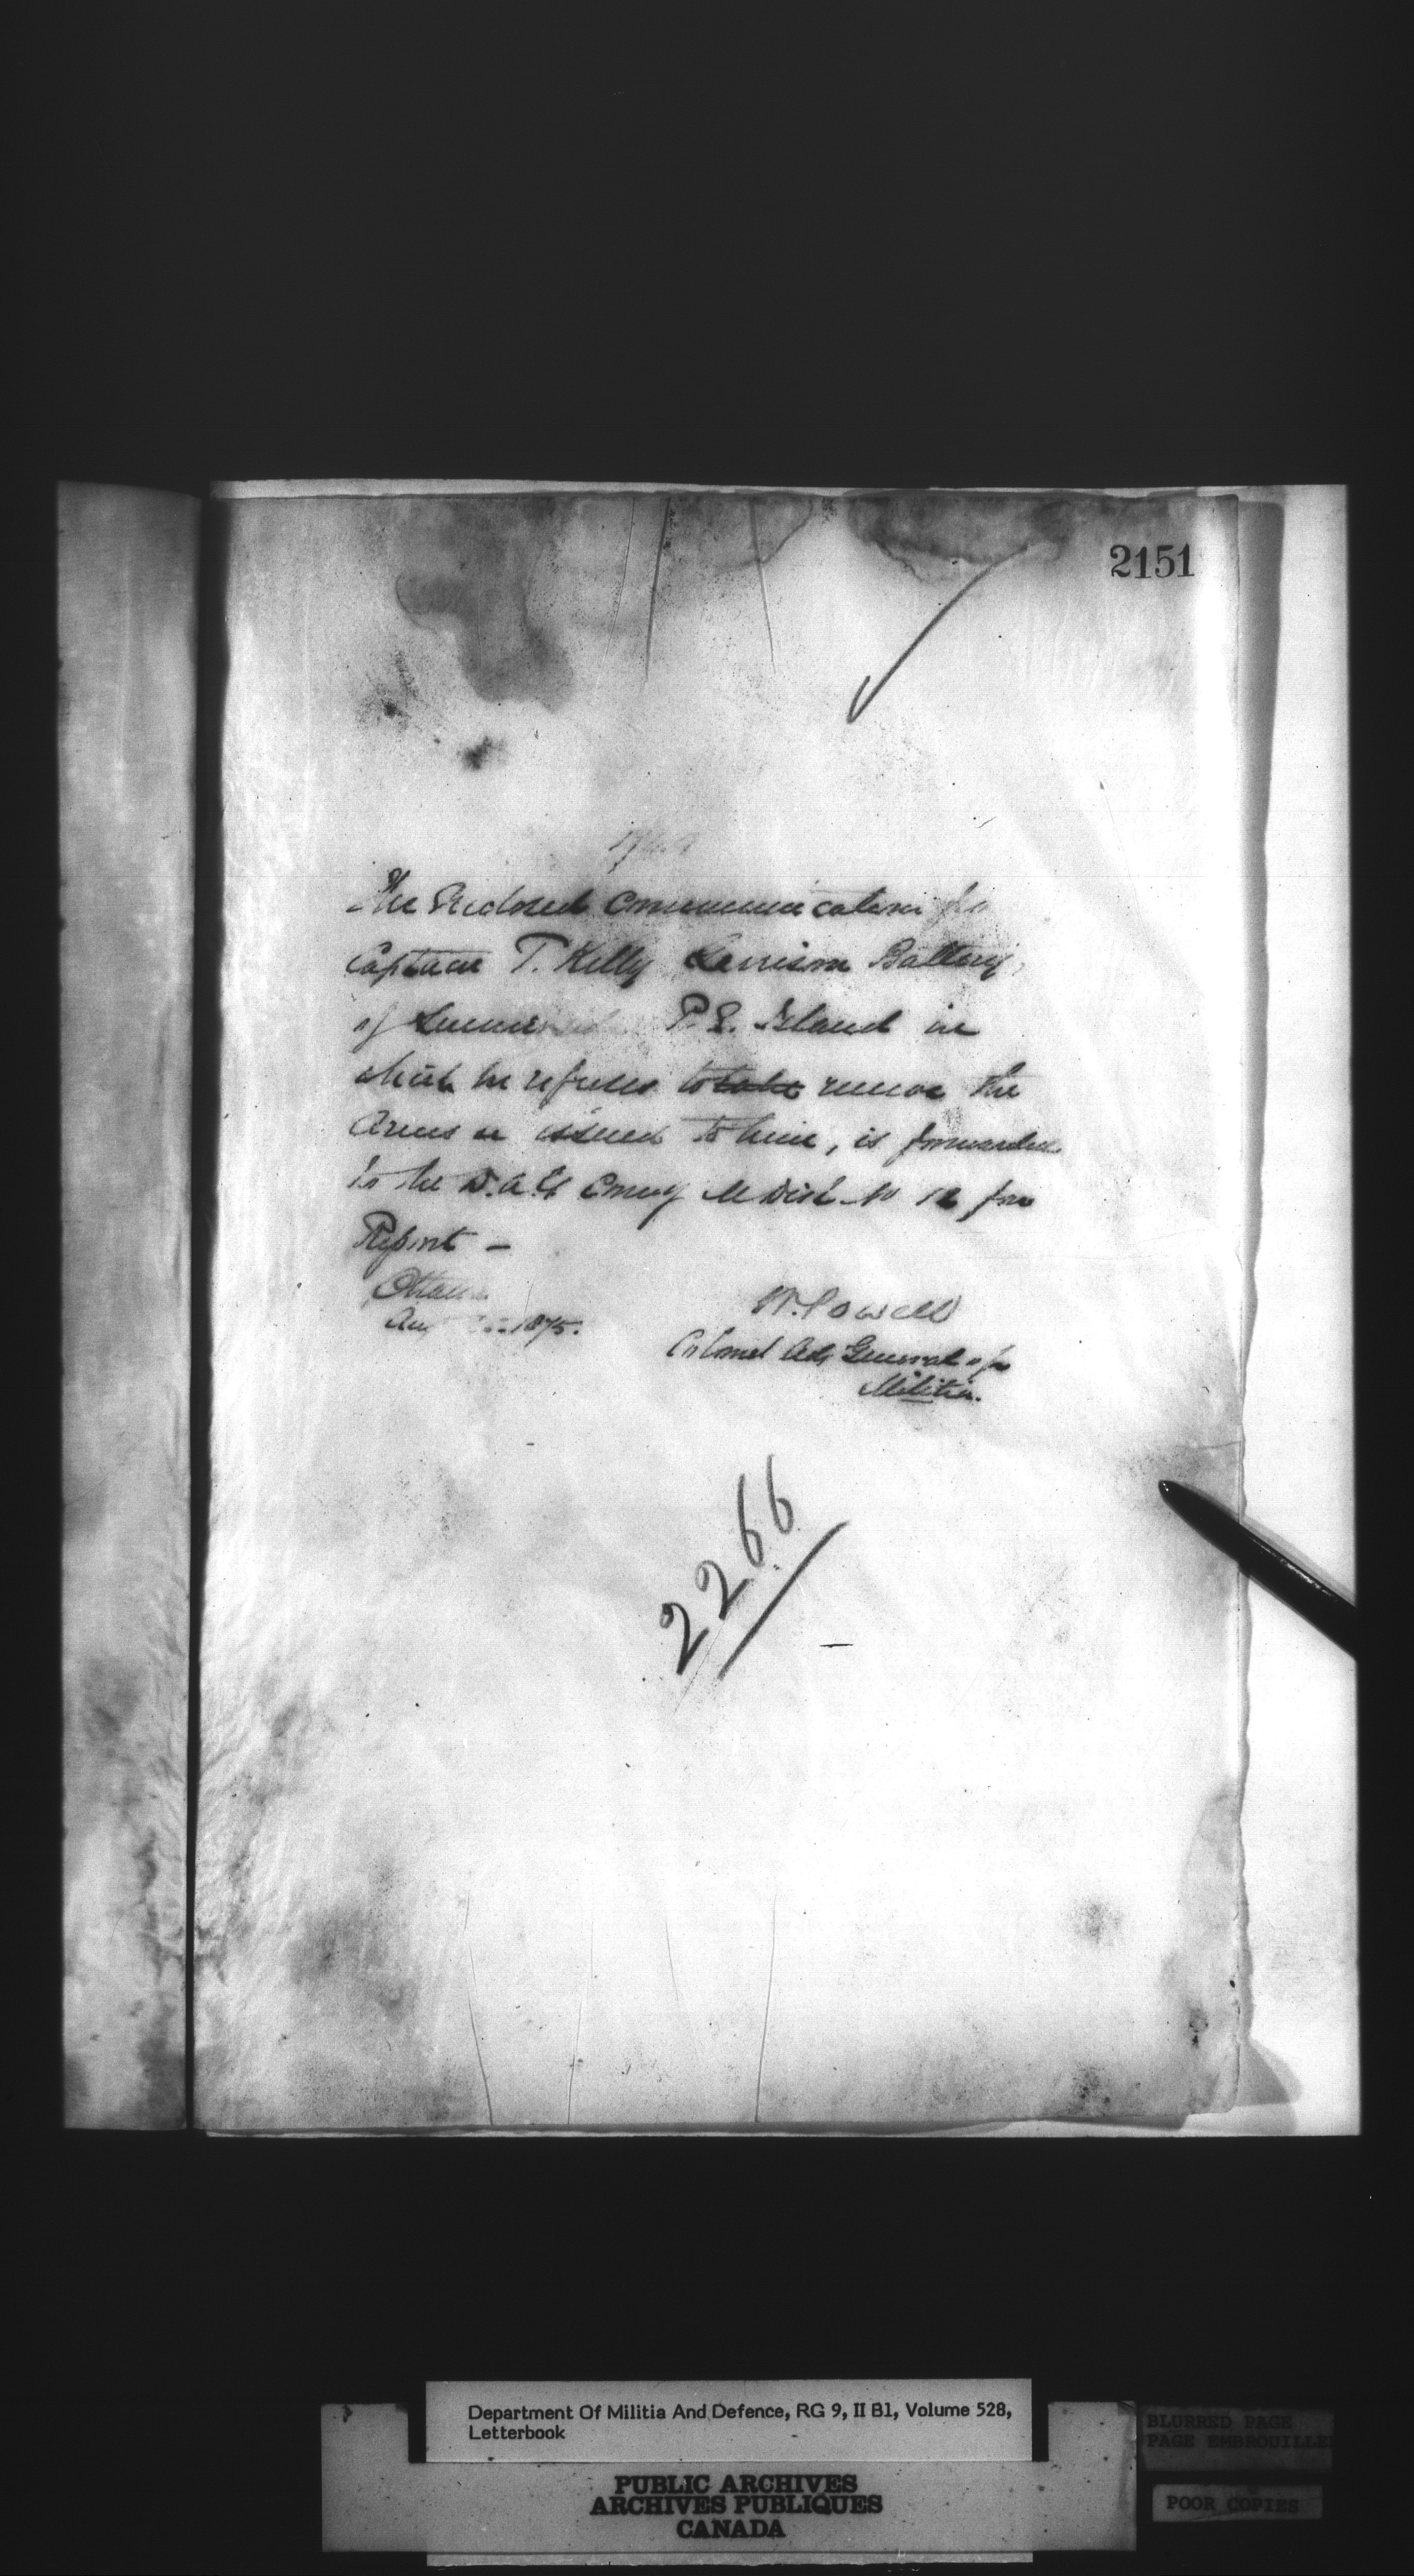 2151
The Enclosed Communication
Captain T. Kelly Garrison Battery,
of P.E. Island in
which he refuses to take remove the
Arms issued to him, is forwarded
to the D.A.G. Comg M Dist No 12 for
Report —
Ottawa
1875.
W. Powell
Colonel Adj General of
Militia.
2266
Department Of Militia And Defence, RG 9, II B1, Volume 528,
Letterbook
PUBLIC ARCHIVES
ARCHIVES PUBLIQUES
CANADA
BLURRED PAGE
PAGE EMBROUILLE
POOR COPIES